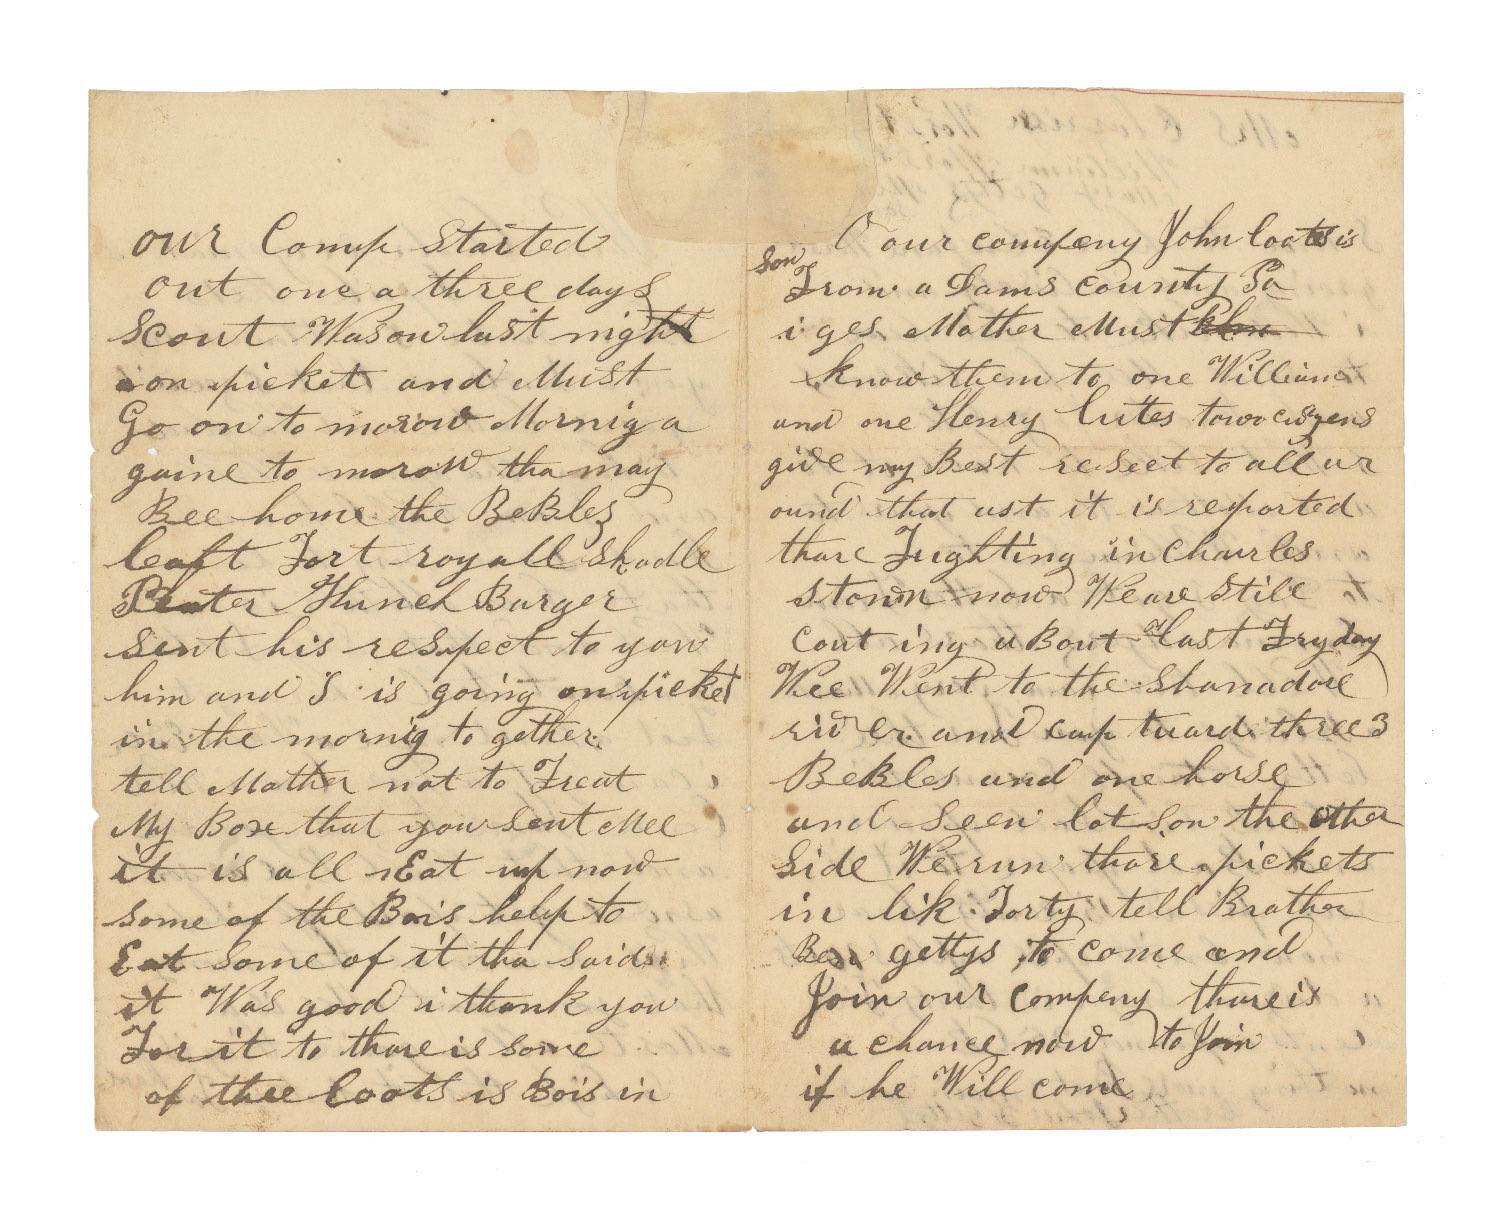 our Comp Started
out one a three days
Scout Wason last night
on picket and Must
Go on to morow Mornig a
gaine to morow tha may
Bee home the BeBles
leaft Fort royall Shadle
Peater Hunch Burger
sent his respect to you
him and I is going on picket
in the mornig to gether
tell Mother not to Freat
My Boxe that you sent Mee
it is all Eat up now
some of the Bois help to
Eat some of it tha Said
it Was good i thank you
For it to thare is some
of thee Coots is Bois in
our compeny John Coots is
son
From a Dams county Pa
i ges Mother Must
know them to one William
and one Henry Cutes towo
give my Best reseet to all ar
ound that ast it is reported
thare Fughting in Charles
stown now We are Still
Cout ing a Bout Last Fryday
Wee Went to the Shanadore
river and Cap tuard three 3
BeBles and one horse
and Seen lots on the other
Side We run thare pickets
in lik Forty tell Brother
Ben gettys to come and
Join our compeny thare is
a chance now to Join
if he Will come